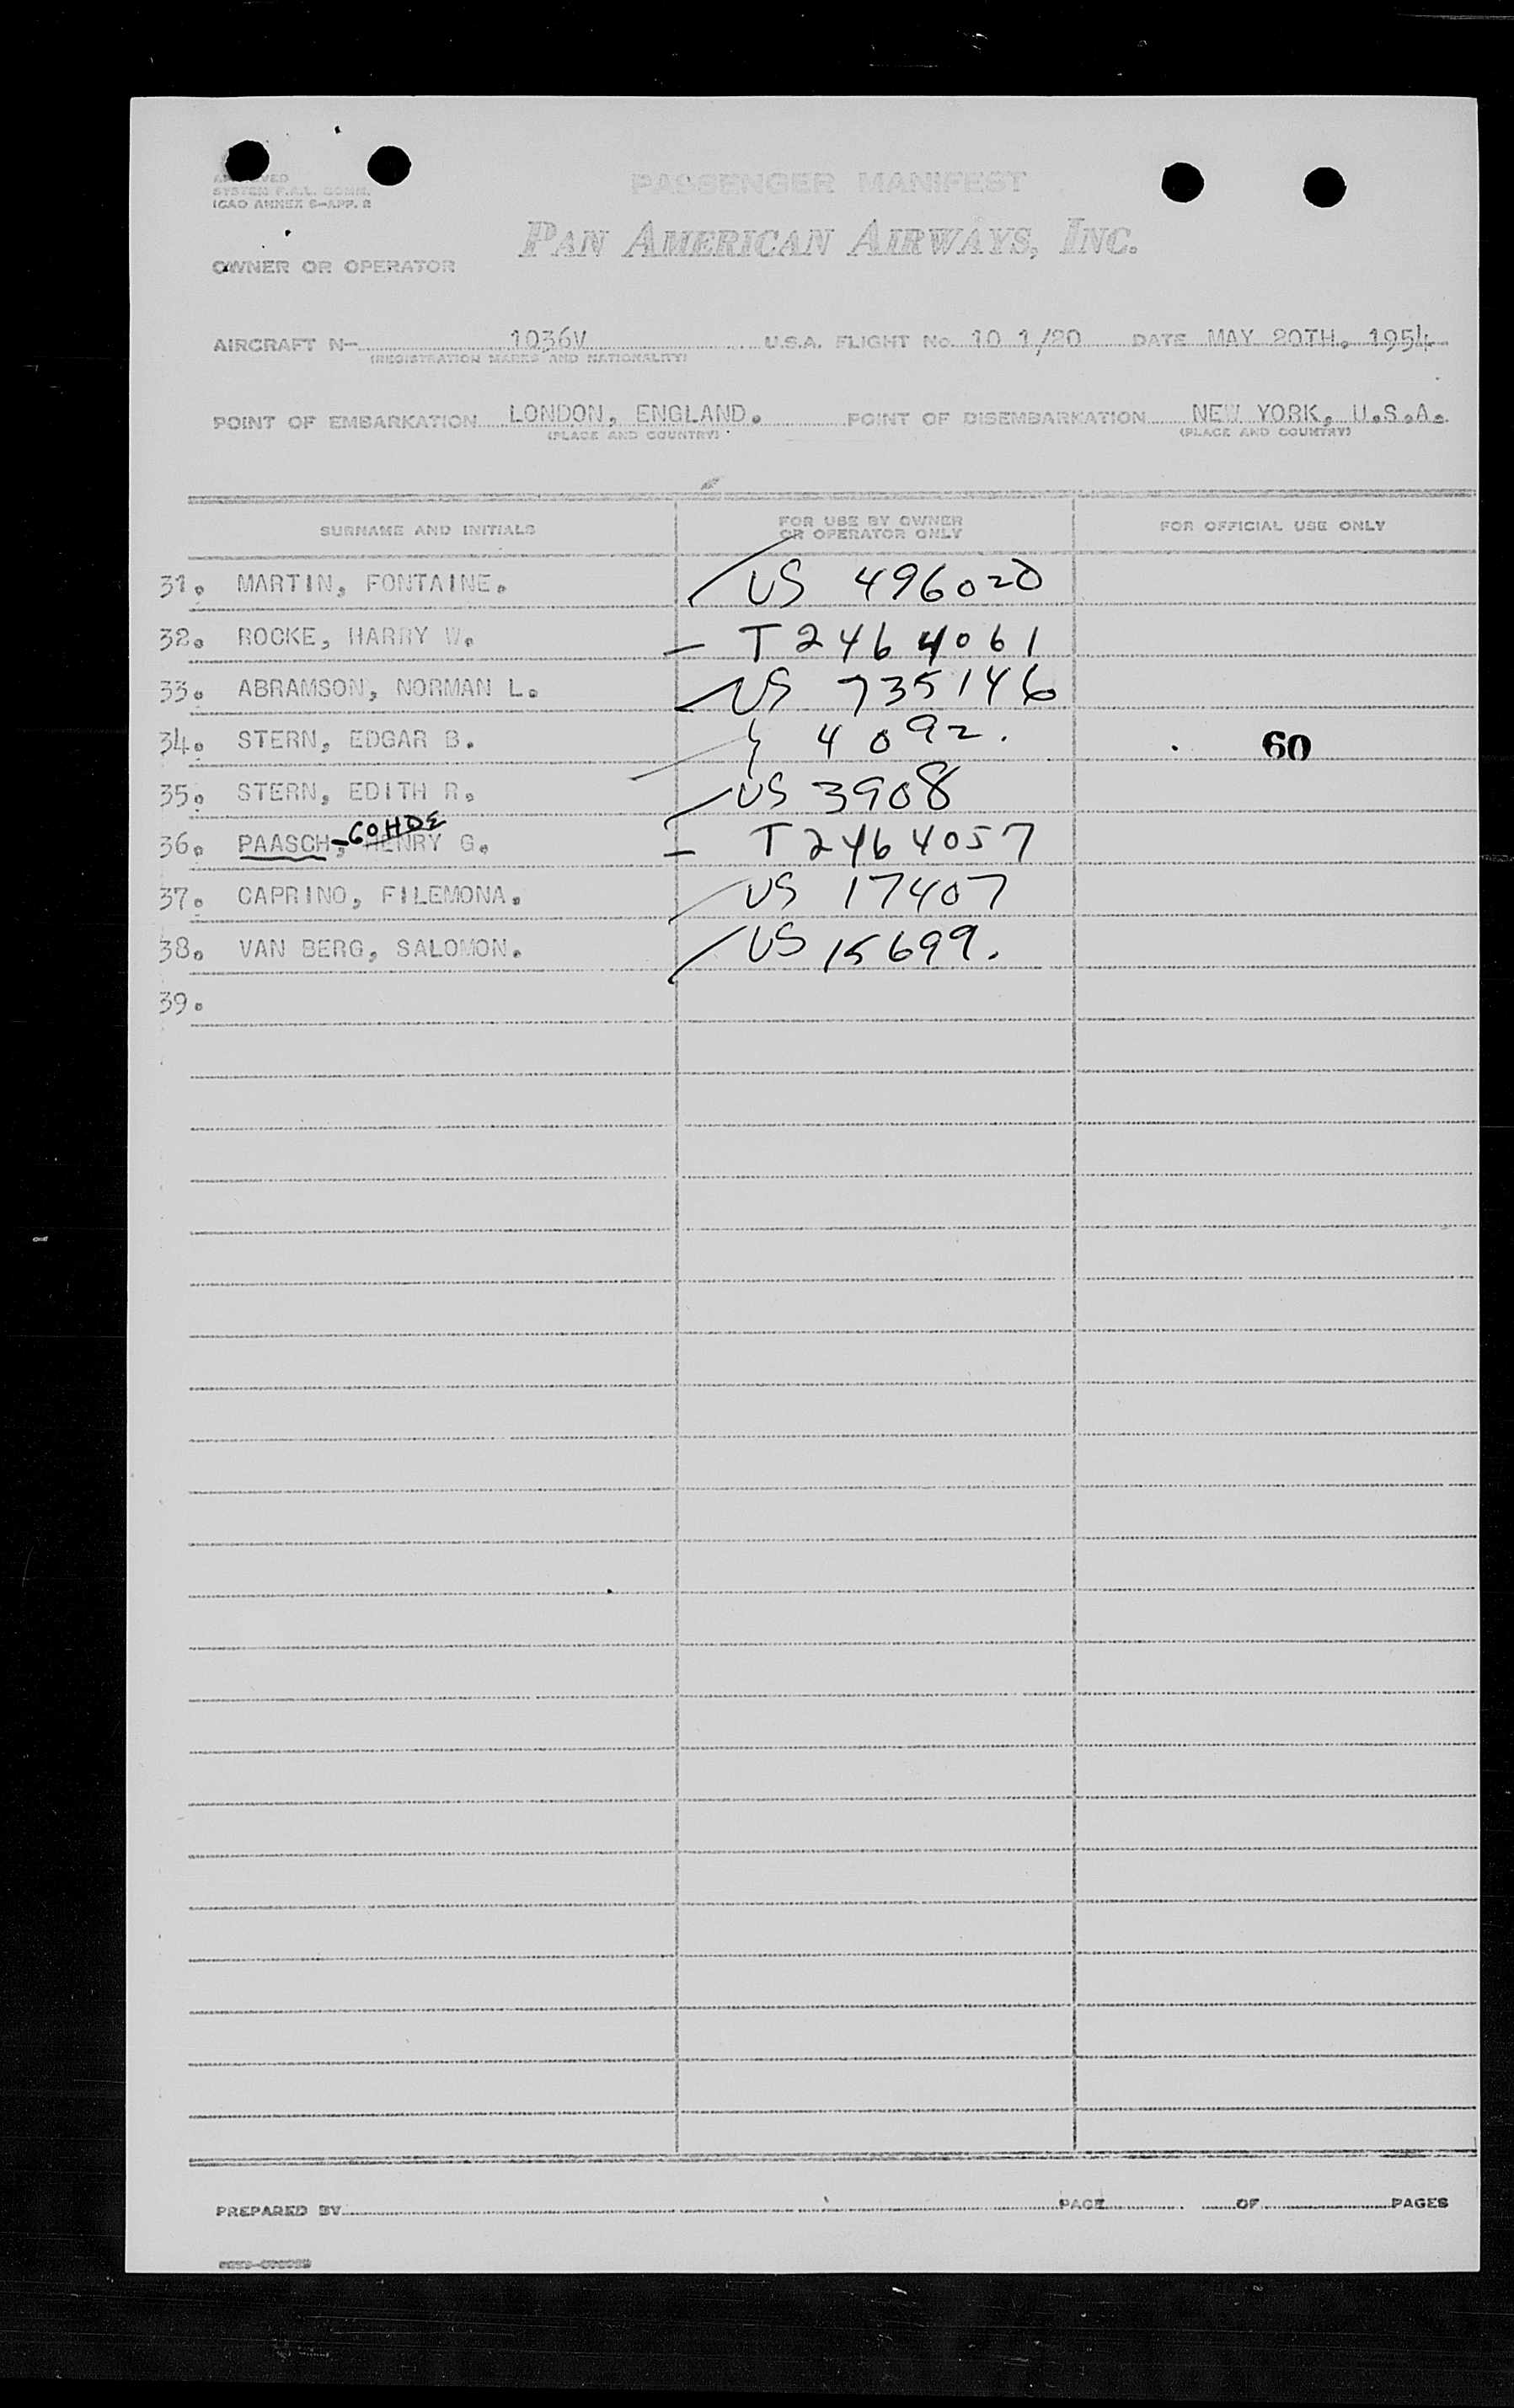 APPROVED
SYSTEM F.A.L. COMM.
ICAO ANNEX 9-APP. 2
PASSENGER MANIFEST
PAN AMERICAN AIRWAYS, INC.
OWNER OR OPERATOR
AIRCRAFT N- 1036V U.S.A. FLIGHT No. 10 1/20 DATE MAY 20TH. 1954
(REGISTRATION MARKS AND NATIONALITY)
POINT OF EMBARKATION LONDON, ENGLAND. POINT OF DISEMBARKATION NEW YORK, U.S.A.
(PLACE AND COUNTRY) (PLACE AND COUNTRY)
SURNAME AND INITIALS FOR USE BY OWNER OR OPERATOR ONLY FOR OFFICIAL USE ONLY
31. MARTIN, FONTAINE. US 496020
32. ROCKE, HARRY W. - T2464061
33. ABRAMSON, NORMAN L. US 735146
34. STERN, EDGAR B. 4092. 60
35. STERN, EDITH R. US 3908
36. PAASCH, -GOHDE HENRY G. - T2464057
37. CAPRINO, FILEMONA. US 17407
38. VAN BERG, SALOMON. US 15699.
39.
PREPARED BY PAGE OF PAGES